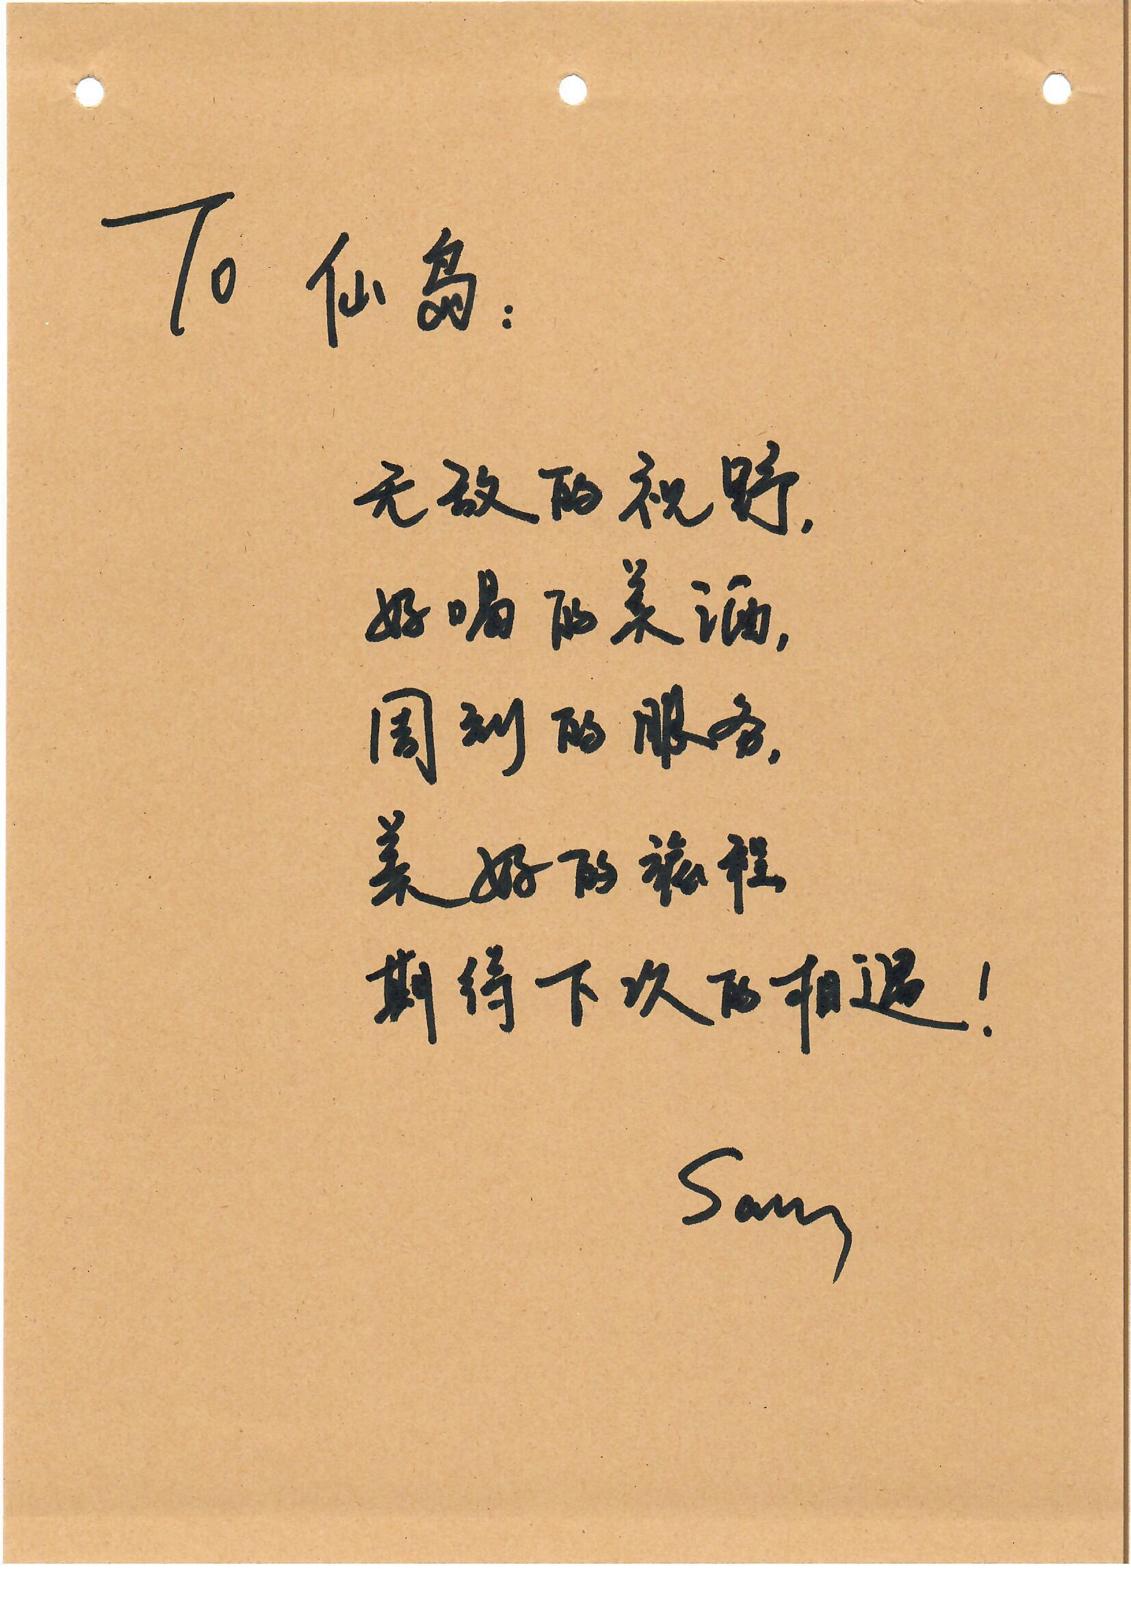 To 仙岛:
无敌的视野,
好喝的美酒,
周到的服务,
美好的旅程
期待下次的相遇!